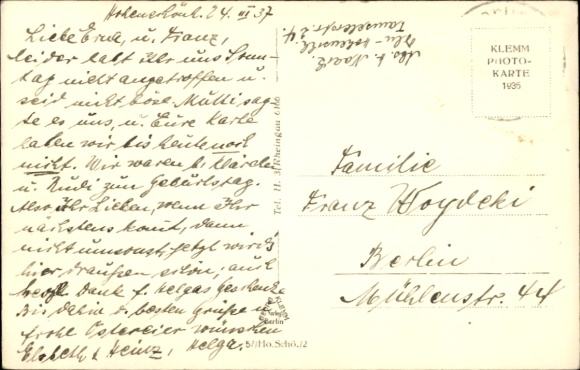 Hohenschönh. 24. III 37
Liebe Erna, u. Franz,
leider habt Ihr uns Sonn-
tag nicht angetroffen u.
seid nicht böse Mutti sag
te es uns, u. Eure Karte
haben wir bis heute noch
nicht. Wir waren b. Klärchen
u. Rudi zum Geburtstag.
Also Ihr Lieben, wenn Ihr
nächstens komt, dann
nicht umsonst, jetzt wird's
hier draußen schön, auch
herzl. Dank f. Helgas Geschenke
Bis dahin d. besten Grüße u
frohe Ostereier wünschen
Elsbeth & Heinz, Helga.
Abs. H.
Bln-Hohenschh.
str. 24.
KLEMM
PHOTO-
KARTE
1935
Tel. H. 3 Rheingau
Berlin
57/Ho. Schö. /2
Familie
Franz Woydeki
Berlin
Mühlenstr. 44